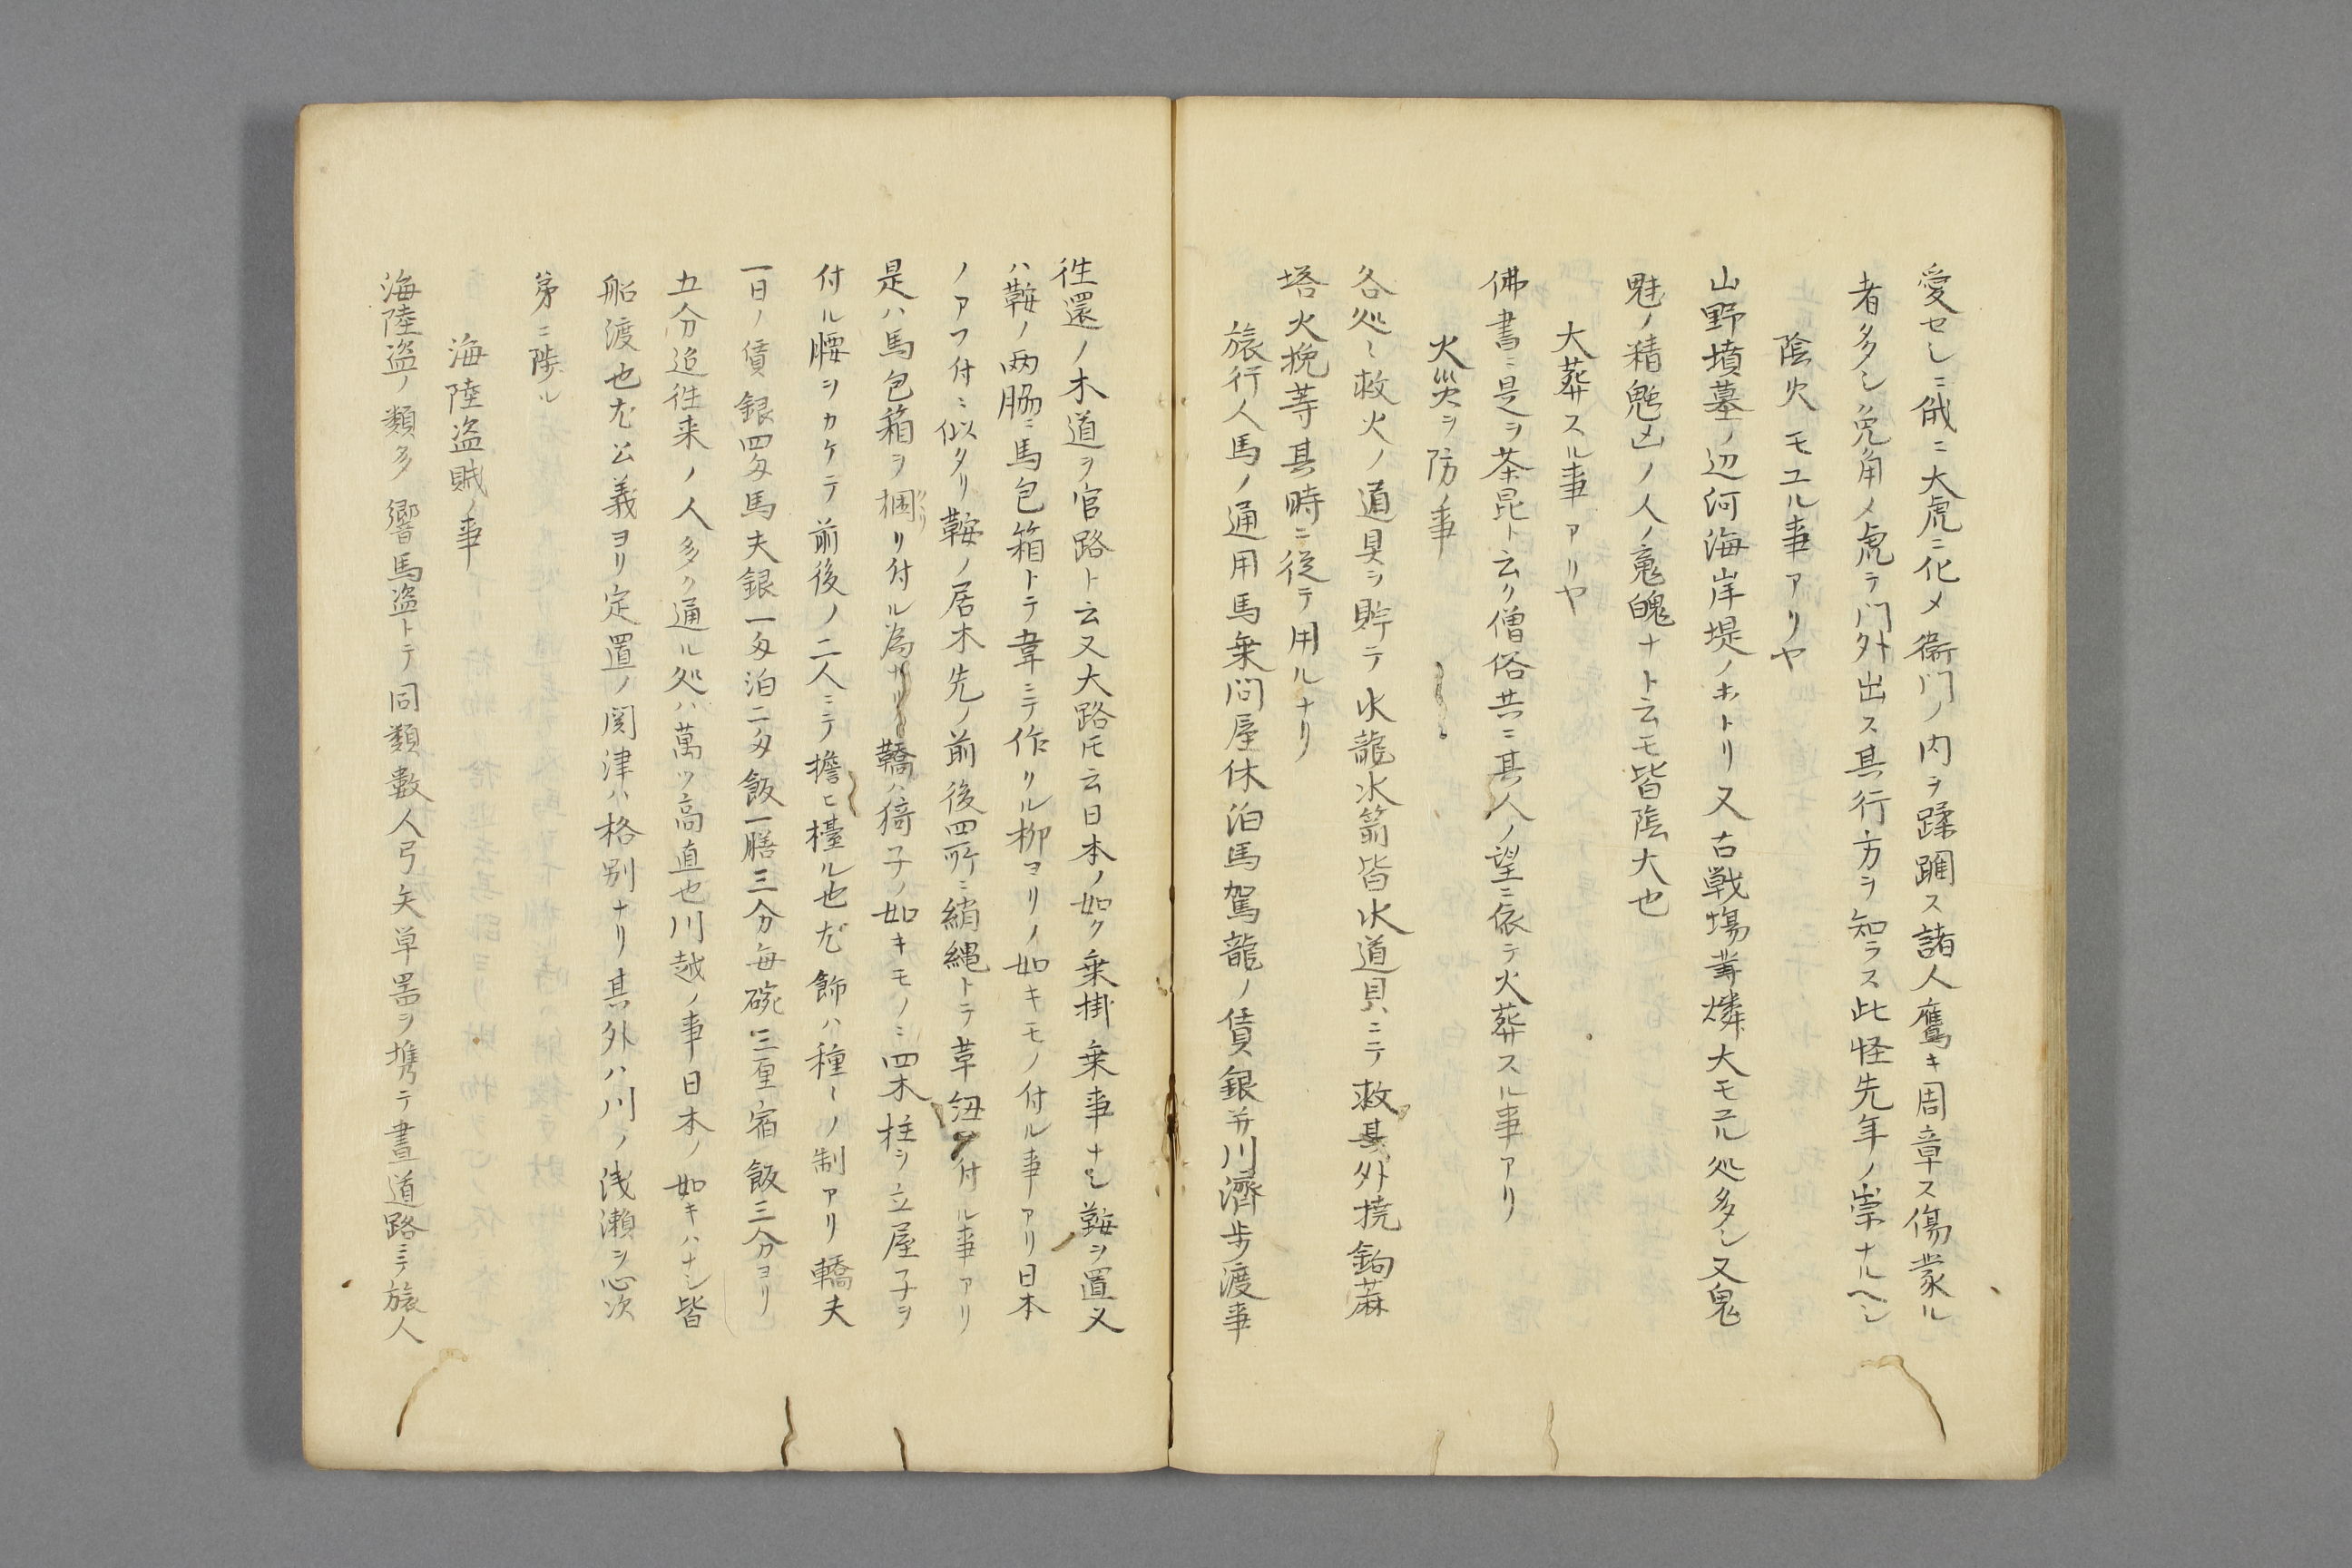 愛セシニ俄ニ大虎ニ化メ衛門ノ内ヲ蹂躙ス諸人鷹キ周章ス傷蒙ル
者多シ兔角メ虎テ門外出ス其行方ヲ知ラス此怪先年ノ崇ナルヘシ
陰火モユル事アリヤ
山野墳墓ノ辺河海岸堤ノホトリ又古戦塲䓁燐大モ元ル処多シ又鬼
魅ノ精魑凶ノ人ノ魂魄ナト云モ皆陰大也
大葬スル事アリヤ
佛書ニ是ヲ茶昆ト云ク僧俗共ニ其人ノ望ニ依テ火葬スル事アリ
火災ヲ防ノ事
各処〻救火ノ道具ヲ貯テ水龍水箭皆水道具ニテ救其外撓鈎蔴
塔火挽䓁其時ニ従テ用ルナリ
旅行人馬ノ通用馬乗問屋休泊馬駕龍ノ賃銀并川濟歩渡事
徃還ノ木道ヲ官路ト云又大路モ云日本ノ如ク乗掛乗事ナシ鞍ヲ置又
ハ鞍ノ両脇ニ馬包箱トテ韋ニテ作リル柳ヨリノ如キモノ付ル事アリ日本
ノアフ付ニ似タリ鞍ノ居木先ノ前後四所ニ綃縄トテ革紐ヲ付ル事アリ
是ハ馬包箱ヲ梱リ付ル為ナリ轎ハ猗子ノ如キモノニ四木柱ヲ立屋子ヲ
付ル腰ヲカケテ前後ノ二人ニテ擔ヒ檯ル也尤飾ハ種〻ノ制アリ轎夫
一日ノ賃銀四匁馬夫銀一匁泊二匁飯一膳三分毎碗三厘宿飯三分ヨリ
五分迨徃来ノ人多ク通ル処ハ萬ツ高直也川越ノ事日木ノ如キハナシ皆
船渡也尤公義ヨリ定置ノ関津ハ格別ナリ其外ハ川ノ浅瀬ヲ心次
第ニ陟ル
海陸盗賊ノ事
海陸盗ノ類多響馬盗トテ同類數人弓矢草噐ヲ携テ晝道路ニテ旅人